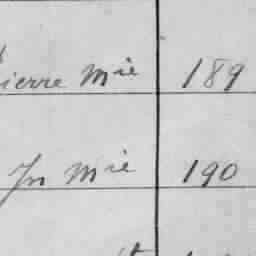 ierre Mie 189
Jn Mie 190